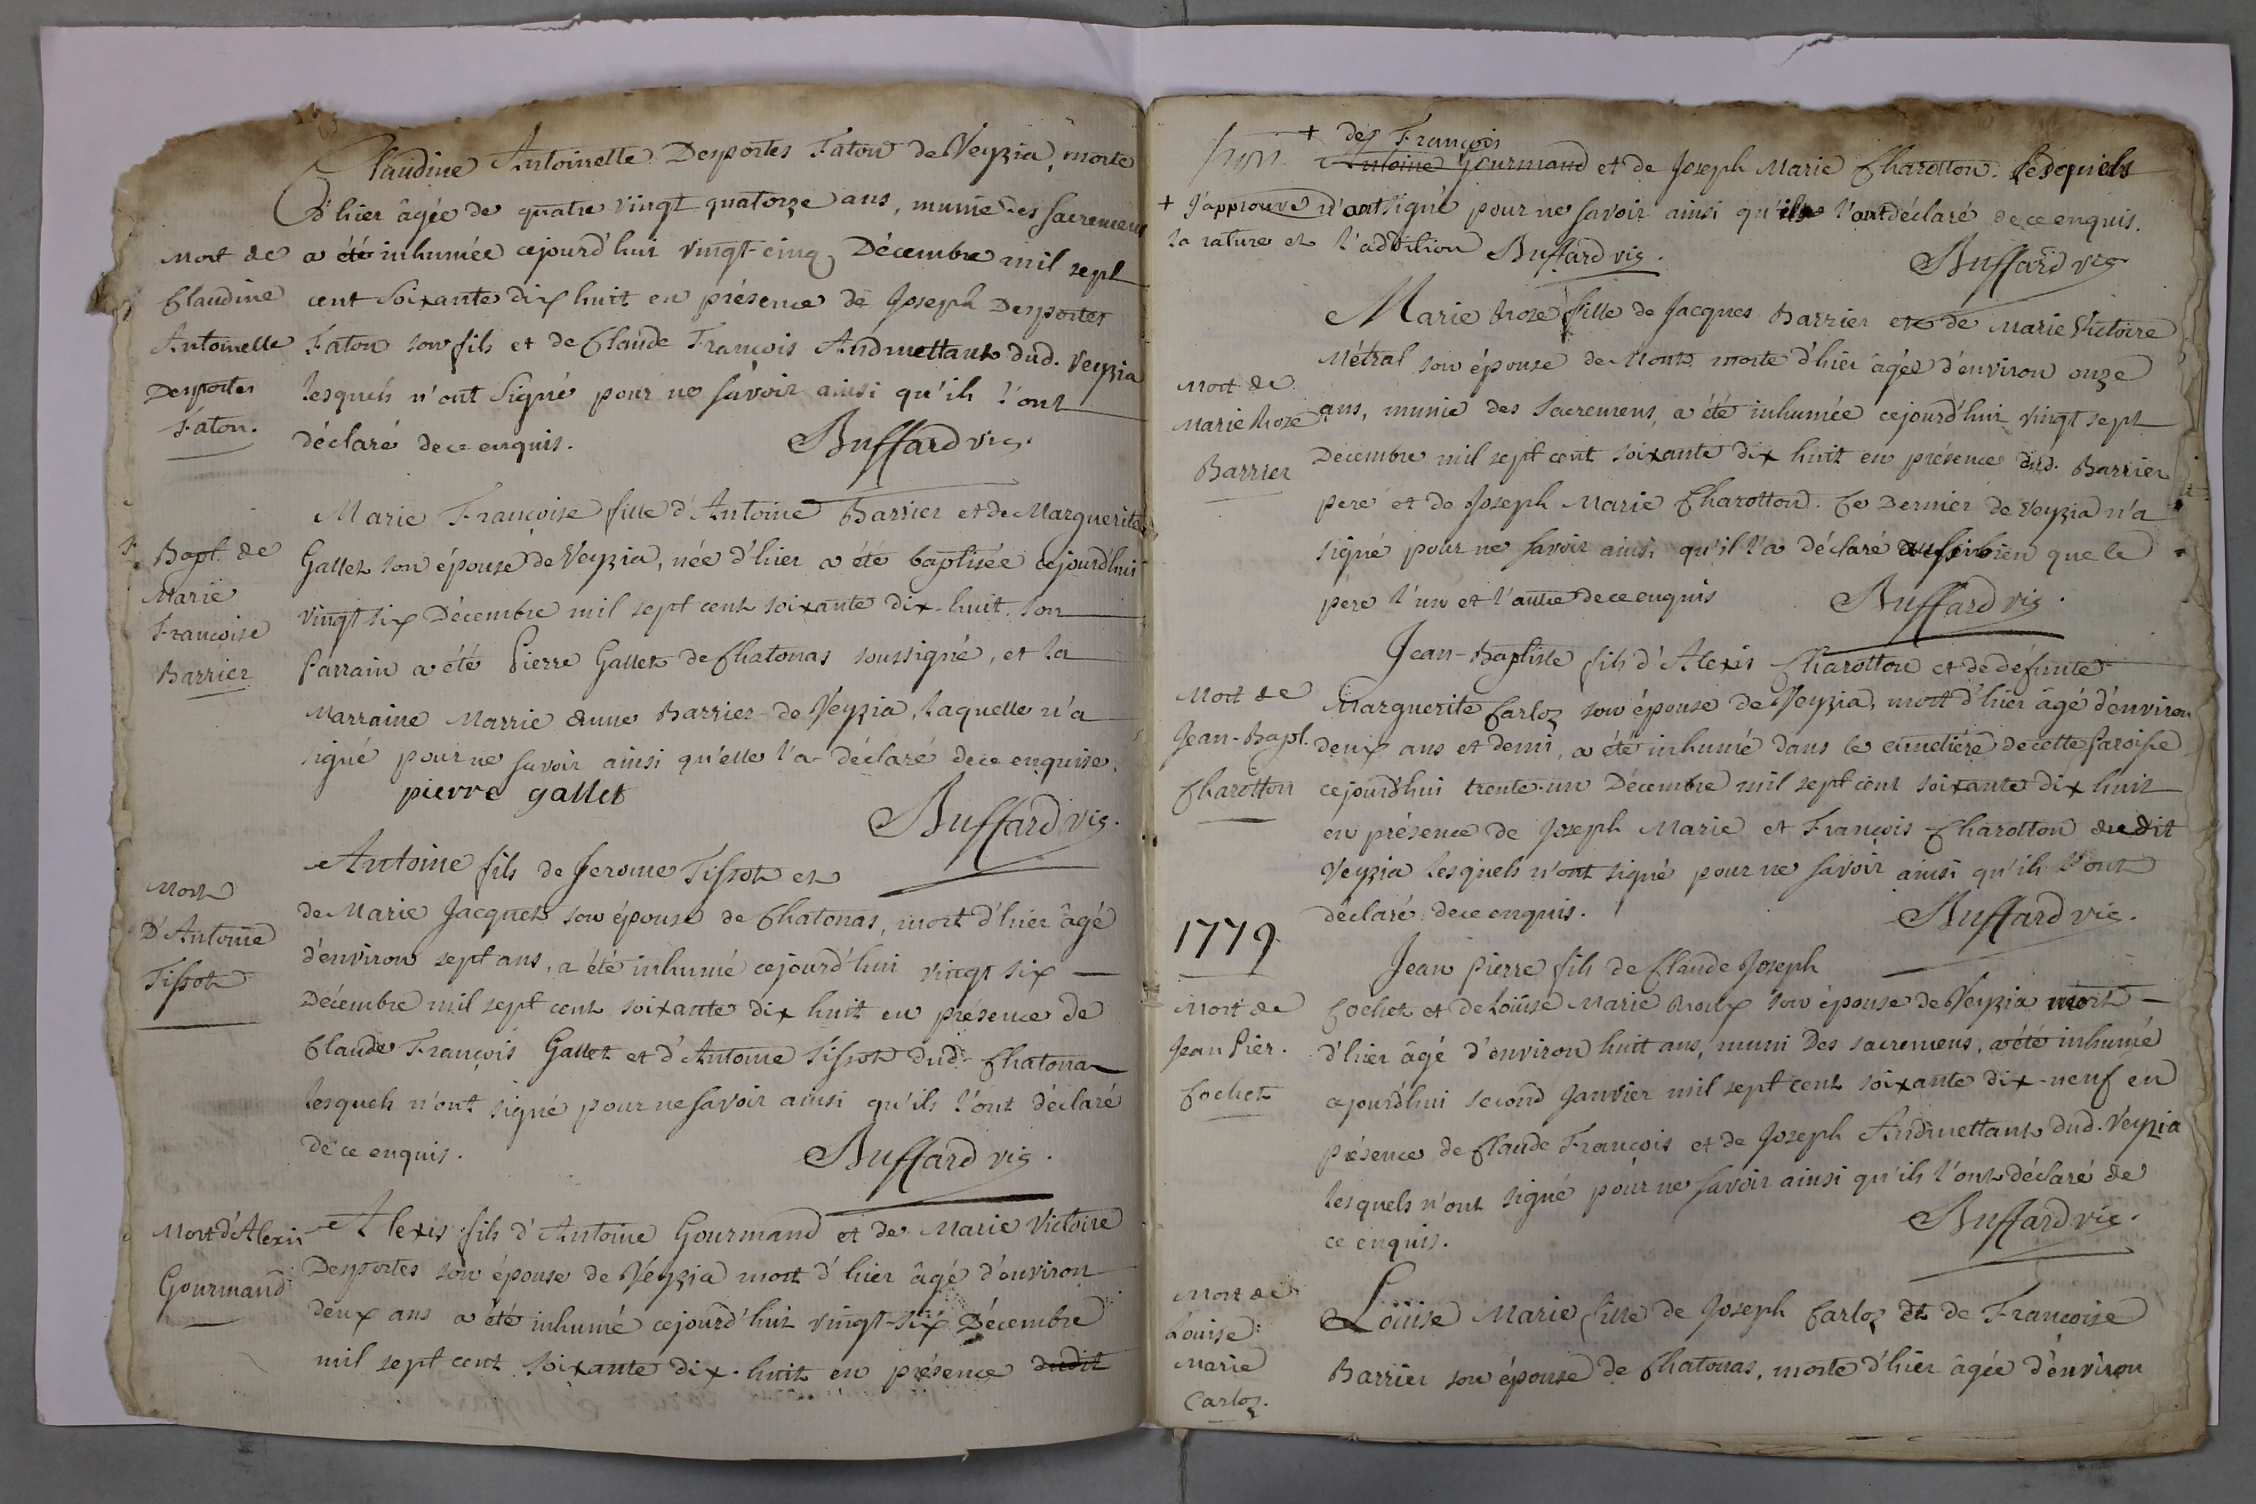 Claudine Antoinette Desportes Faton de Veyzia, morte
d'hier âgée de quatre vingt quatorze ans, munie des sacremens
a été inhumée cejourd'hui vingt-cinq Décembre mil sept
cent soixante dix huit en présence de Joseph Desportes
Faton son fils et de Claude François Andruettant dud. Veyzia
lesquels n'ont signé pour ne savoir ainsi qu'ils l'ont
déclaré de ce enquis.
Buffard vic.
Mort de
Claudine
Antoinette
Desportes
faton.
Marie Françoise fille d'Antoine Barrier et de Marguerite
Gallet son épouse de Veyzia, née d'hier a été baptisée cejourd'hui
vingt six Décembre mil sept cent soixante dix-huit. son
Parrain a été Pierre Gallet de Chatonas soussigné, et la
Marraine Marrie Barrier de Veyzia, laquelle n'a
signé pour ne savoir ainsi qu'elle l'a déclaré de ce enquise.
pierre gallet
Buffard vic.
Bapt. de
Marie
Françoise
Barrier
Antoine fils de Jerome Tissot et
de Marie Jacquet son épouse de Chatonas, mort d'hier âgé
d'environ sept ans, a été inhumé cejourd'hui vingt six
Décembre mil sept cent soixante dix huit en présence de
Claude François Gallet et d'Antoine Tissot dud. Chatona
lesquels n'ont signé pour ne savoir ainsi qu'ils l'ont déclaré
de ce enquis.
Buffard vic.
Mort
D'Antoine
Tissot
Alexis fils d'Antoine Gourmand et de Marie Victoire
Desportes son épouse de Veyzia mort d'hier âgé d'environ
deux ans a été inhumé cejourd'hui vingt-six Décembre
mil sept cent soixante dix-huit en présence dudit
Mort d'Alexis
Gourmand
+ des François
Antoine Gourmand et de Joseph Marie Charotton. lesquels
n'ont signé pour ne savoir ainsi qu'ils l'ont déclaré de ce enquis.
+ J'approuve
la rature et l'addition Buffard vic.
Buffard vic
Marie Rose fille de Jacques Barrier et de Marie Victoire
Métral son épouse de Mons morte d'hier âgée d'environ onze
ans, munie des sacremens, a été inhumée cejourd'hui vingt sept
Décembre mil sept cent soixante dix huit en présence dud. Barrier
pere et de Joseph Marie Charotton. Ce Dernier de Veyzia n'a
signé pour ne savoir ainsi qu'il l'a déclaré aussi bien que le
père l'un et l'autre de ce enquis
Buffard vic.
Mort de
Marie Rose
Barrier
Jean-Baptiste fils d'Alexis Charotton et de défunte
Marguerite Carloz son épouse de Veyzia, mort d'hier âgé d'environ
deux ans et demi, a été inhumé dans le cimetière de cette Paroisse
cejourd'hui trente-un Décembre mil sept cent soixante dix huit
en présence de Joseph Marie et François Charotton dudit
Veyzia lesquels n'ont signé pour ne savoir ainsi qu'ils l'ont
déclaré de ce enquis.
Buffard vic.
Mort de
Jean-Bapt.
Charotton
1779.
Jean Pierre fils de Claude Joseph
Cochet et de Loüise Marie son épouse de Veyzia mort
d'hier âgé d'environ huit ans, muni Des sacremens, a été inhumé
cejourd'hui second Janvier mil sept cent soixante dix-neuf en
présence de Claude François et de Joseph Andruettant dud. Veyzia
lesquels n'ont signé pour ne savoir ainsi qu'ils l'ont déclaré de
ce enquis.
Buffard vic.
Mort de
Jean Pier.
Cochet
Loüise Marie fille de Joseph Carloz et de Françoise
Barrier son épouse de Chatonas, morte d'hier âgée d'environ
Mort de
Louise
Marie
Carloz.